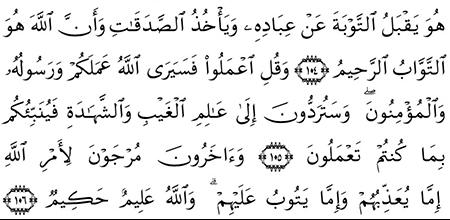 هُوَ يَقْبَلُ ٱلتَّوْبَةَ عَنْ عِبَادِهِۦ وَيَأْخُذُ ٱلصَّدَقَـٰتِ وَأَنَّ ٱللَّهَ هُوَ
ٱلتَّوَّابُ ٱلرَّحِيمُ ۝١٠٤ وَقُلِ ٱعْمَلُوا۟ فَسَيَرَى ٱللَّهُ عَمَلَكُمْ وَرَسُولُهُۥ
وَٱلْمُؤْمِنُونَ ۖ وَسَتُرَدُّونَ إِلَىٰ عَـٰلِمِ ٱلْغَيْبِ وَٱلشَّهَـٰدَةِ فَيُنَبِّئُكُم
بِمَا كُنتُمْ تَعْمَلُونَ ۝١٠٥ وَءَاخَرُونَ مُرْجَوْنَ لِأَمْرِ ٱللَّهِ
إِمَّا يُعَذِّبُهُمْ وَإِمَّا يَتُوبُ عَلَيْهِمْ ۗ وَٱللَّهُ عَلِيمٌ حَكِيمٌ ۝١٠٦